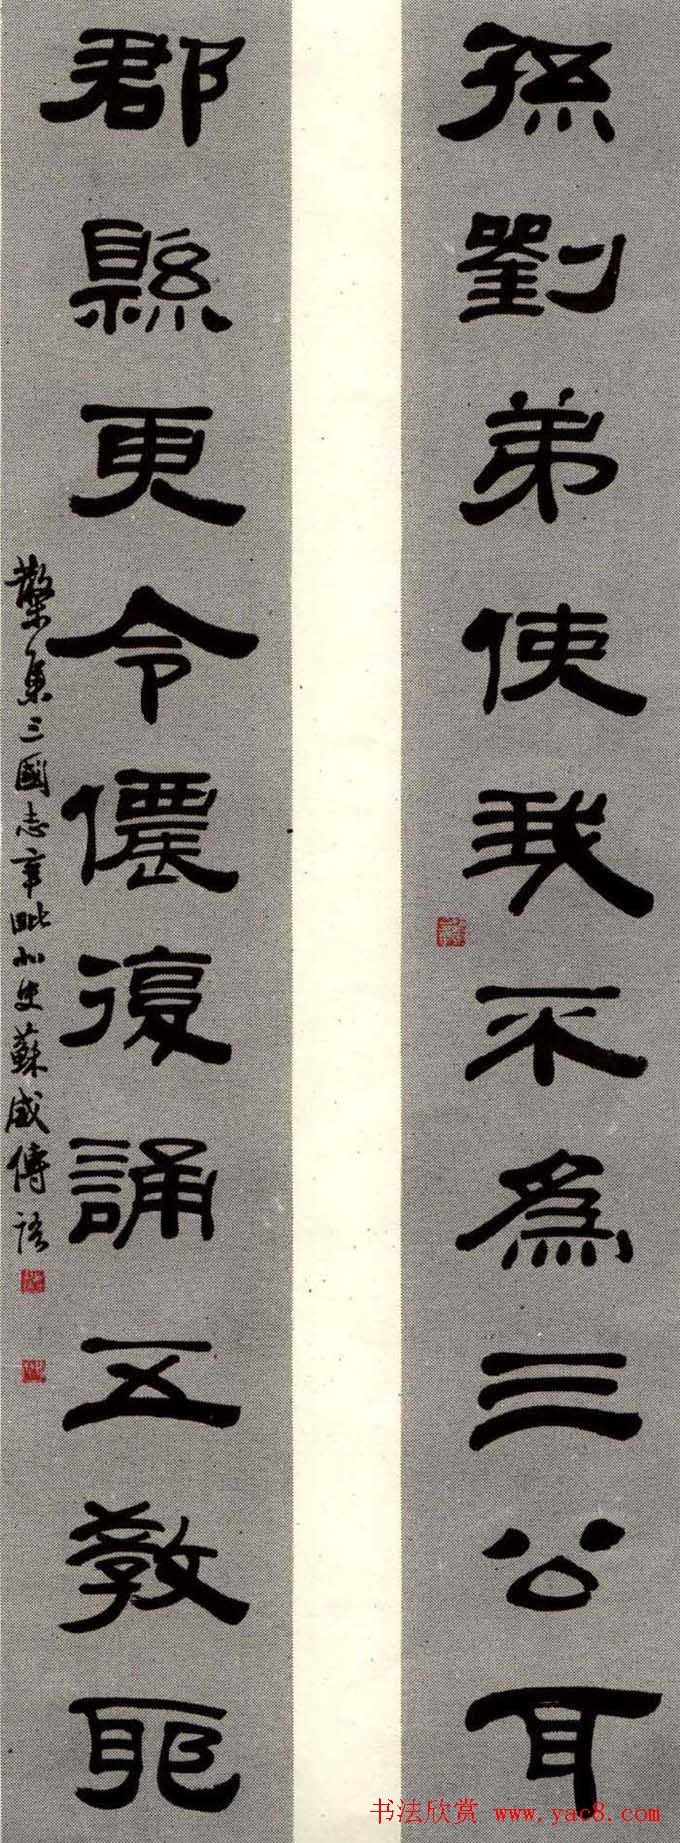 孫劉弟使我不為三公耳
郡縣更令儂復誦五教耶
集三國志辛毗北史蘇威傳語
书法欣赏 www.yac8.com